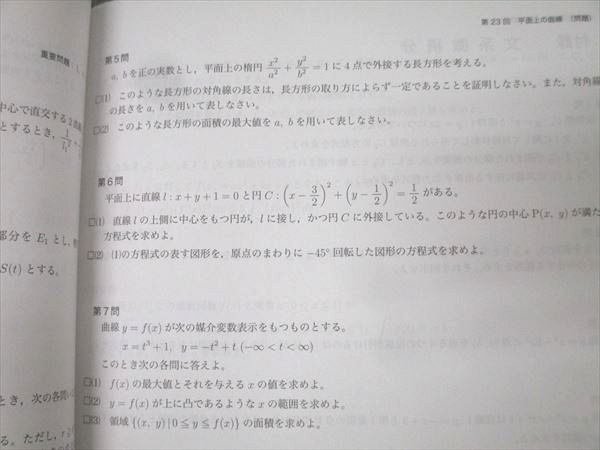 第23回 平面上の曲線 (問題)
重要問題
第5問
a, bを正の実数とし，平面上の楕円 x²/a² + y²/b² = 1 に4点で外接する長方形を考える。
□(1) このような長方形の対角線の長さは，長方形の取り方によらず一定であることを証明しなさい。また，対角線
の長さを a, b を用いて表しなさい。
□(2) このような長方形の面積の最大値を a, b を用いて表しなさい。
中心で直交する2
とするとき，
第6問
平面上に直線 l : x + y + 1 = 0 と円 C : (x − 3/2)² + (y − 1/2)² = 1/2 がある。
□(1) 直線 l の上側に中心をもつ円が，l に接し，かつ円 C に外接している。このような円の中心 P(x, y) が満た
方程式を求めよ。
□(2) (1)の方程式の表す図形を，原点のまわりに −45° 回転した図形の方程式を求めよ。
部分を E₁ とし，
S(t) とする。
第7問
曲線 y = f(x) が次の媒介変数表示をもつものとする。
x = t³ + 1, y = −t² + t (−∞ < t < ∞)
このとき次の各問に答えよ。
□(1) f(x) の最大値とそれを与える x の値を求めよ。
□(2) y = f(x) が上に凸であるような x の範囲を求めよ。
□(3) 領域 {(x, y) | 0 ≦ y ≦ f(x)} の面積を求めよ。
とき，次の各問い
る。ただし，